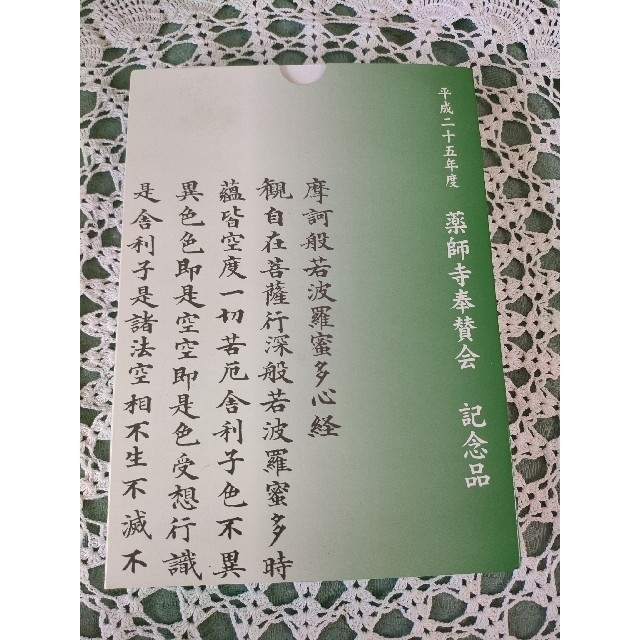 平成二十五年度 薬師寺奉賛会 記念品
摩訶般若波羅蜜多心経
観自在菩薩行深般若波羅蜜多時
蘊皆空度一切苦厄舎利子色不異
異色色即是空空即是色受想行識
是舎利子是諸法空相不生不滅不